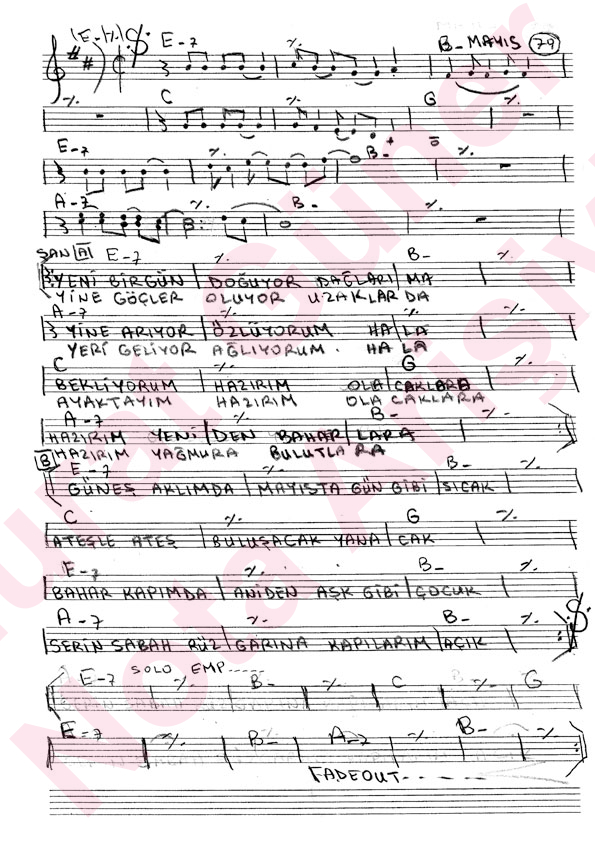 (E-7) E-7 ٪ B- MAYIS 79
٪ C ٪ G ٪
E-7 ٪ B- ٪
A-7 ٪ B- ٪
ŞAN A E-7 ٪ B- ٪
YENİ BİRGÜN DOĞUYOR DAĞLARI MA
YİNE GÖÇLER OLUYOR UZAKLAR DA
A-7 ٪ ٪
YİNE ARIYOR ÖZLÜYORUM HA LA
YERİ GELİYOR AĞLIYORUM. HA LA
C ٪ G ٪
BEKLİYORUM HAZIRIM OLA CAKLARA
AYAKTAYIM HAZIRIM OLA CAKLARA
A-7 ٪ B- ٪
HAZIRIM YENİ DEN BAHAR LARA
HAZIRIM YAĞMURA BULUTLA RA
B E-7 ٪ B- ٪
GÜNEŞ AKLIMDA MAYISTA GÜN GİBİ SICAK
C ٪ G ٪
ATEŞLE ATEŞ BULUŞACAK YANA CAK
E-7 ٪ B- ٪
BAHAR KAPIMDA ANİDEN AŞK GİBİ ÇOCUK
A-7 ٪ B- ٪
SERİN SABAH RÜZ GARINA KAPILARIM AÇIK
E-7 SOLO EMP----- ٪ B- ٪ C ٪ G
E-7 ٪ B- A-7 ٪ B- ٪
FADEOUT-----
Nota Arşivi